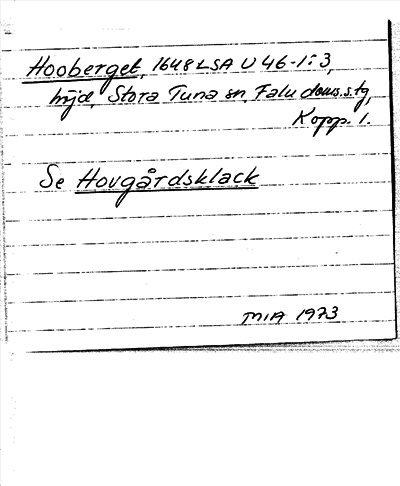 Hooberget, 1648 LSA U 46-1:3,
höjd, Stora Tuna sn, Falu doms.s.tg,
Kopp. l.
Se Hovgårdsklack
MIA 1973